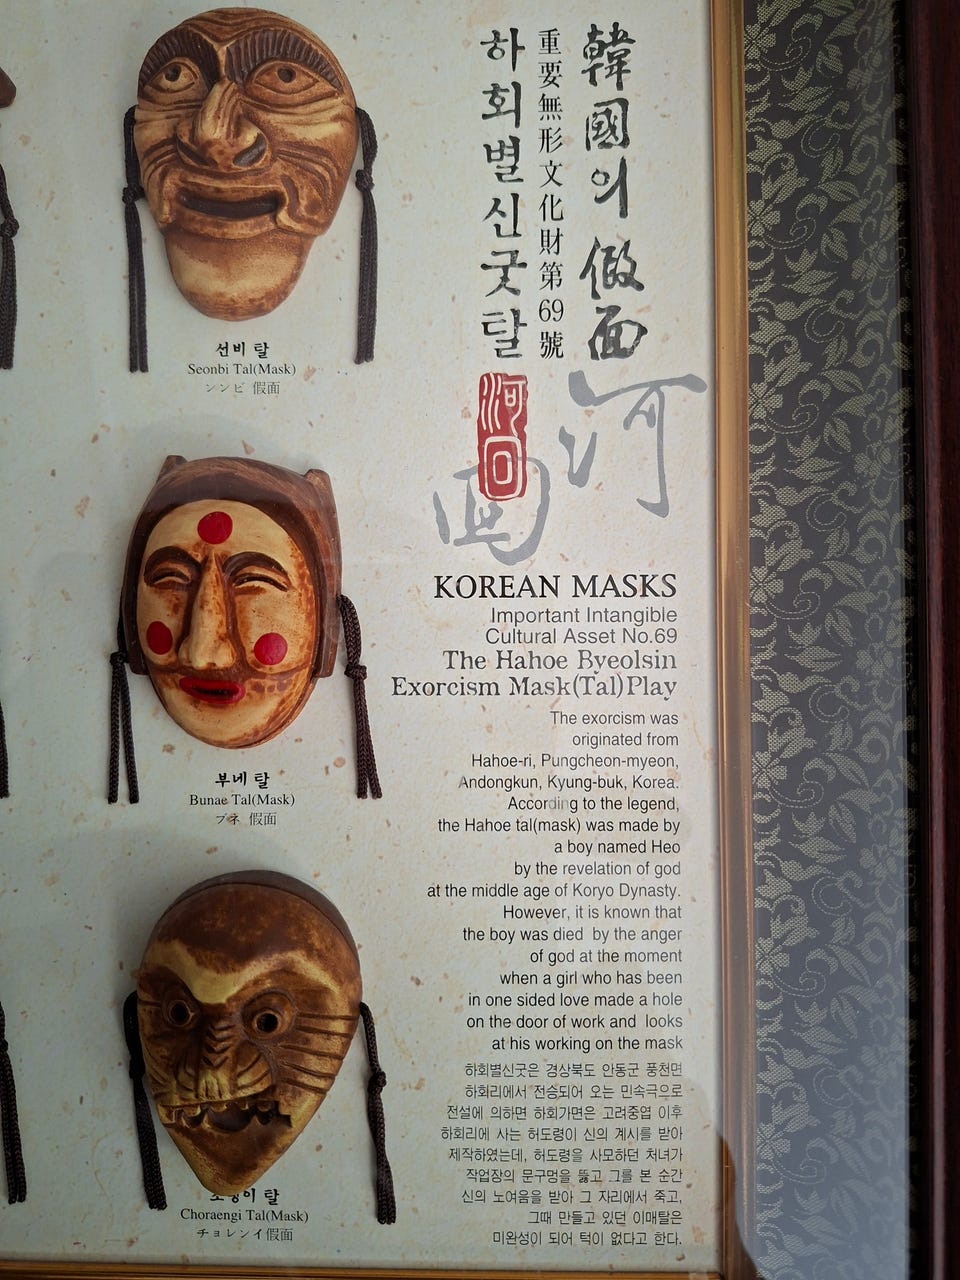 韓國의 假面
重要無形文化財第69號
하회별신굿탈
河回
河回
선비 탈
Seonbi Tal(Mask)
ソンビ 假面
부네 탈
Bunae Tal(Mask)
プネ 假面
초랭이 탈
Choraengi Tal(Mask)
チョレンイ假面
KOREAN MASKS
Important Intangible
Cultural Asset No.69
The Hahoe Byeolsin
Exorcism Mask(Tal)Play
The exorcism was
originated from
Hahoe-ri, Pungcheon-myeon,
Andongkun, Kyung-buk, Korea.
According to the legend,
the Hahoe tal(mask) was made by
a boy named Heo
by the revelation of god
at the middle age of Koryo Dynasty.
However, it is known that
the boy was died by the anger
of god at the moment
when a girl who has been
in one sided love made a hole
on the door of work and looks
at his working on the mask
하회별신굿은 경상북도 안동군 풍천면
하회리에서 전승되어 오는 민속극으로
전설에 의하면 하회가면은 고려중엽 이후
하회리에 사는 허도령이 신의 계시를 받아
제작하였는데, 허도령을 사모하던 처녀가
작업장의 문구멍을 뚫고 그를 본 순간
신의 노여움을 받아 그 자리에서 죽고,
그때 만들고 있던 이매탈은
미완성이 되어 턱이 없다고 한다.